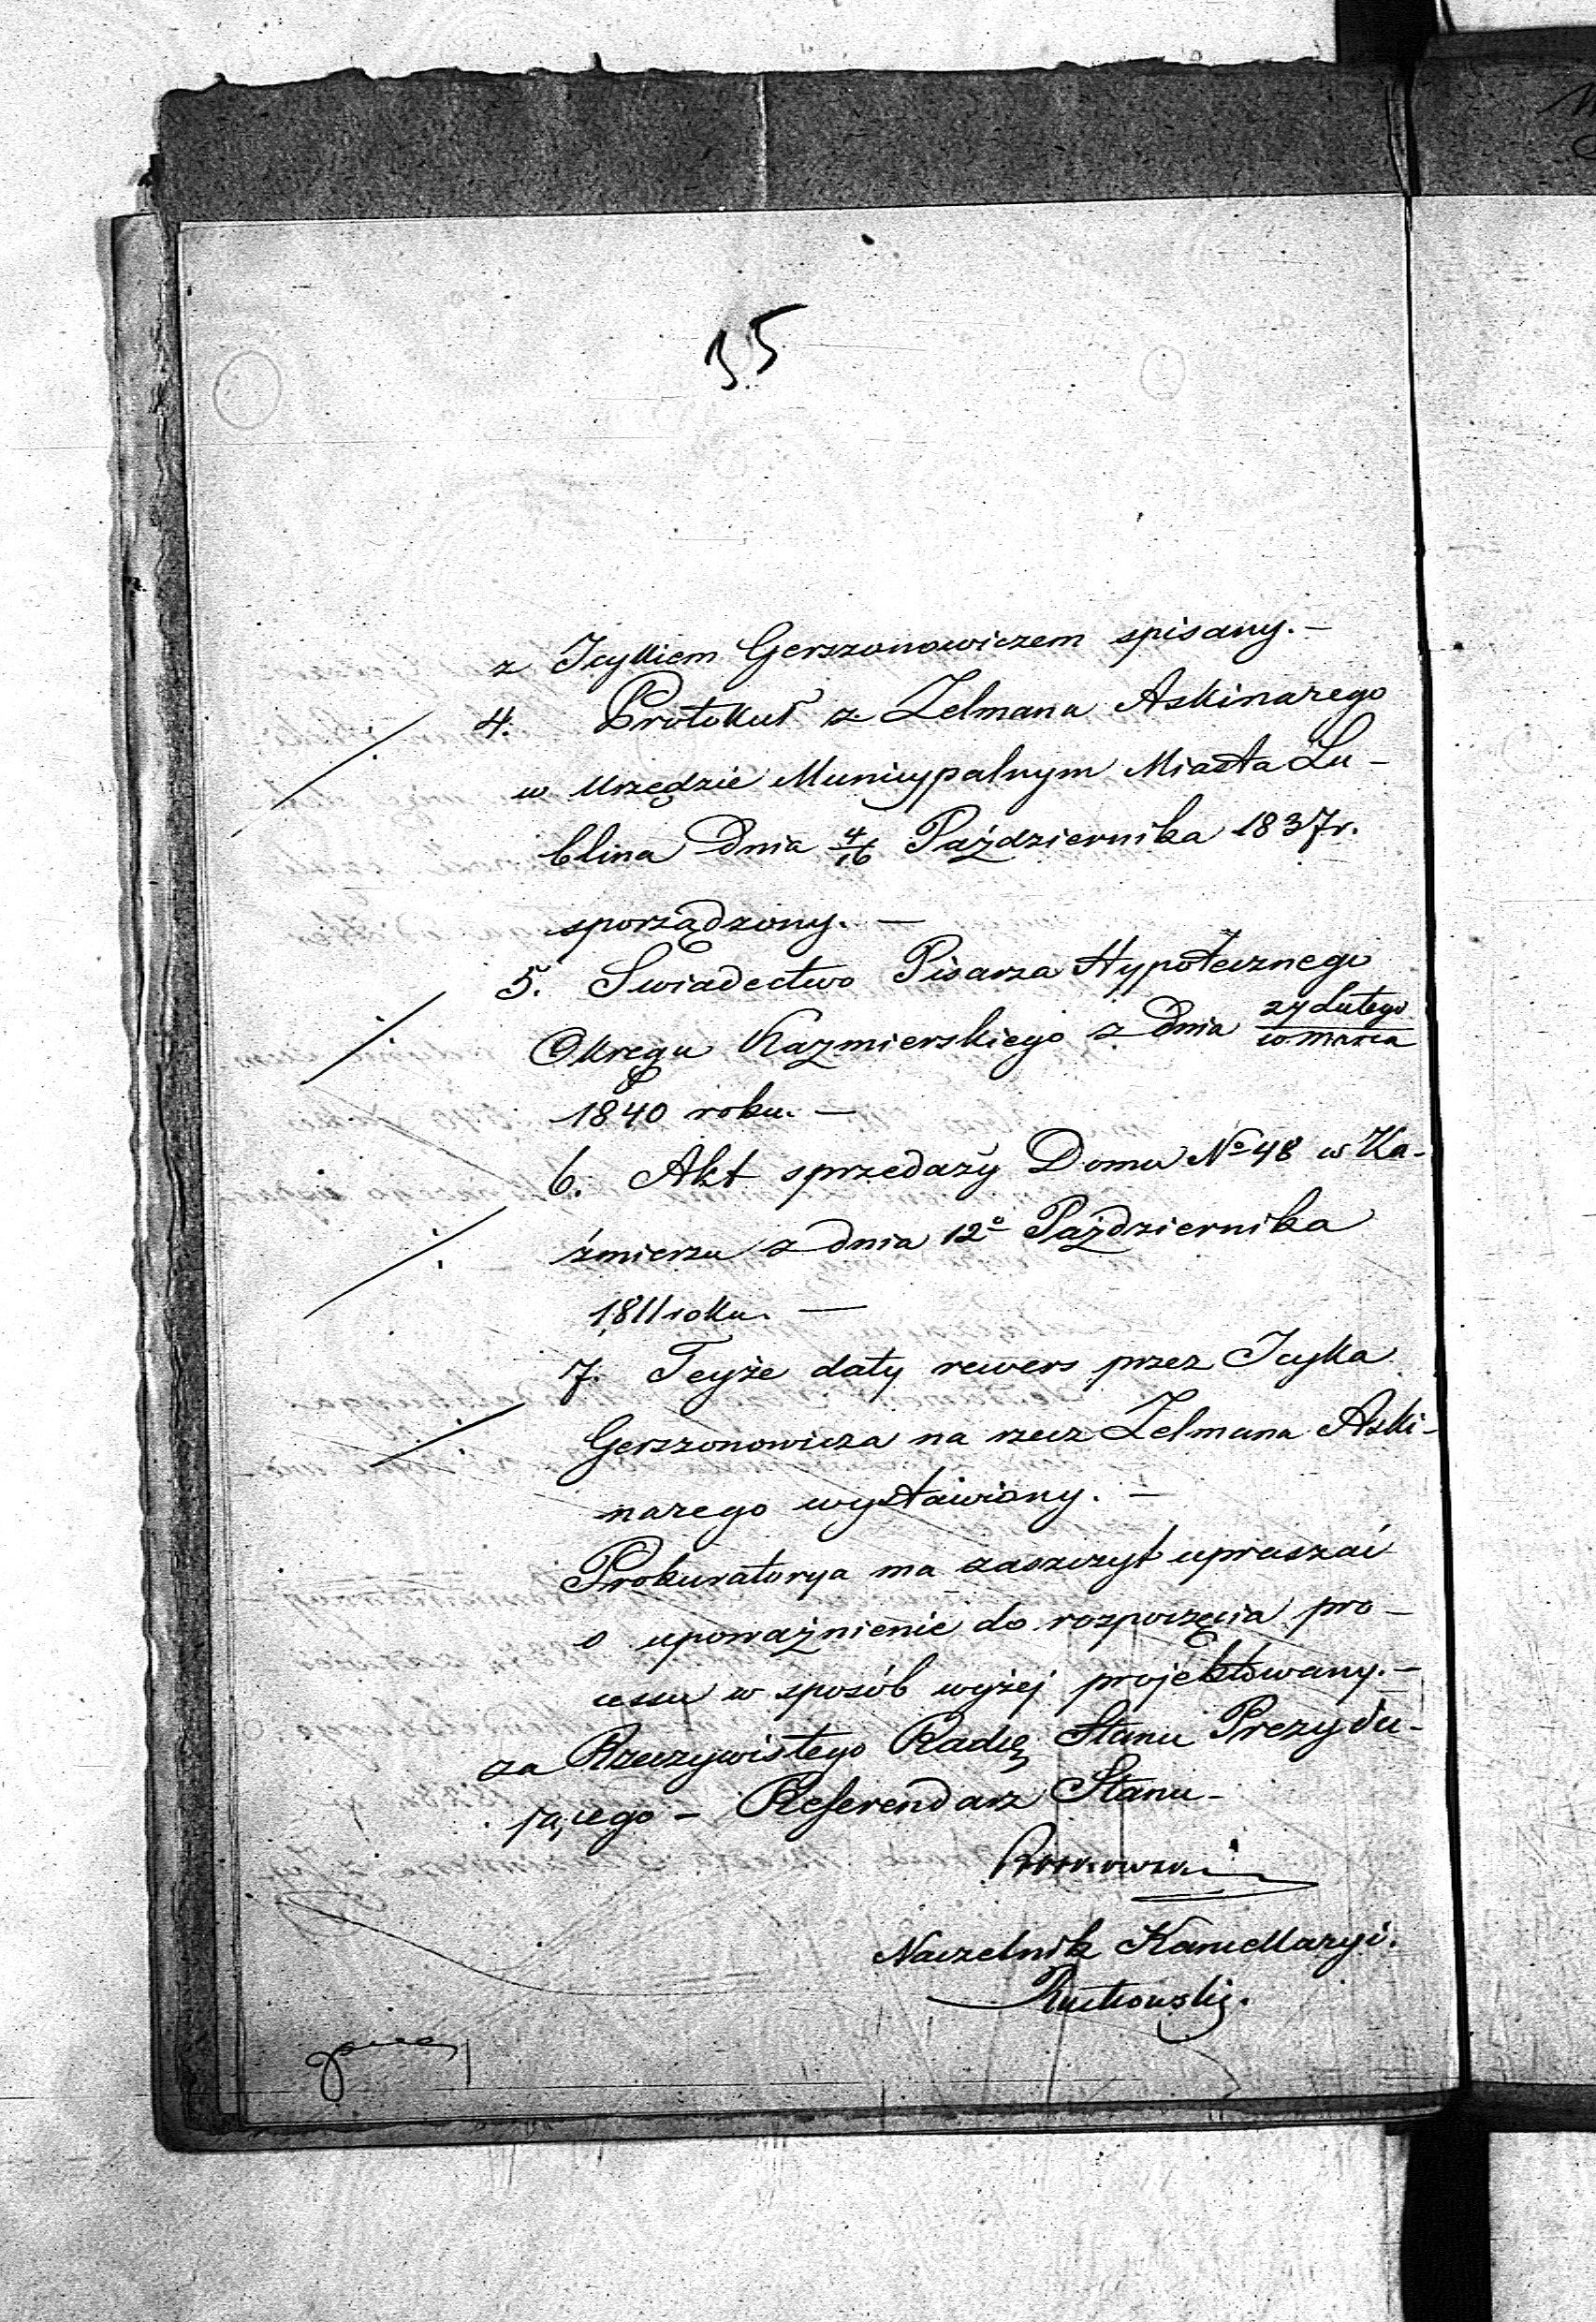 35
z Icykiem Gerszonowiczem spisany. —
4. Protokuł z Zelmana Askinazego
w Urzędzie Municypalnym Miasta Lu-
blina Dnia 4/16 Października 1837r.
sporządzony. —
5. Swiadectwo Pisarza Hypotecznego
Okręgu Kazmierskiego z Dnia 27 Lutego
Marca
1840 roku. —
6. Akt sprzedaży Domu No 48 w Ka-
źmierzu z dnia 12o Października
1811 roku. —
7. Teyże daty rewers przez Icyka
Gerszonowicza na rzecz Zelmana Aski-
nazego wystawiony. —
Prokuratorya ma zaszczyt upraszać
o upoważnienie do rozpoczęcia pro-
cessu w sposób wyżej projektowany. —
za Rzeczywistego Radcę Stanu Prezydu-
jącego — Referendarz Stanu —
Naczelnik Kancellaryi.
Rutkowski.